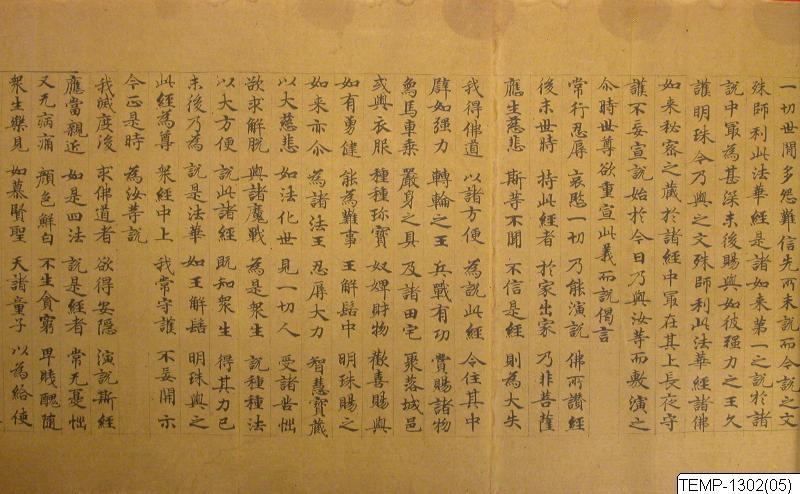 一切世間多怨難信先所未說而今說之文
殊師利此法華經是諸如來第一之說於諸
說中冣為甚深末後賜與如彼强力之王久
護明珠今乃與之文殊師利此法華經諸佛
如來秘密之藏於諸經中冣在其上長夜守
護不妄宣說始於今日乃與汝等而敷演之
尒時世尊欲重宣此義而說偈言
常行忍辱 哀愍一切 乃能演說 佛所讚經
後末世時 持此經者 於家出家 乃非菩薩
應生慈悲 斯等不聞 不信是經 則為大失
我得佛道 以諸方便 為說此經 令住其中
譬如强力 轉輪之王 兵戰有功 賞賜諸物
象馬車乘 嚴身之具 及諸田宅 聚落城邑
或與衣服 種種珎寶 奴婢財物 歡喜賜與
如有勇健 能為難事 王解髻中 明珠賜之
如來亦尒 為諸法王 忍辱大力 智慧寶藏
以大慈悲 如法化世 見一切人 受諸苦惱
欲求解脫 與諸魔戰 為是衆生 說種種法
以大方便 說此諸經 既知衆生 得其力已
末後乃為 說是法華 如王解髻 明珠與之
此經為尊 衆經中上 我常守護 不妄開示
今正是時 為汝等說
我滅度後 求佛道者 欲得安隱 演說斯經
應當親近 如是四法 說是經者 常无憂惱
又无病痛 顏色鮮白 不生貧窮 卑賤醜陋
衆生樂見 如慕賢聖 天諸童子 以為給使
TEMP-1302(05)